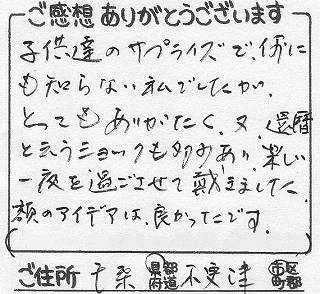 ご感想ありがとうございます
子供達のサプライズで、何に
も知らない私でしたが、
とってもありがたく、又、還暦
と云うショックも多少あり、楽しい
一夜を過ごさせて戴きました。
額のアイデアは、良かったです。
ご住所 千葉 都道府県 木更津 市区町郡